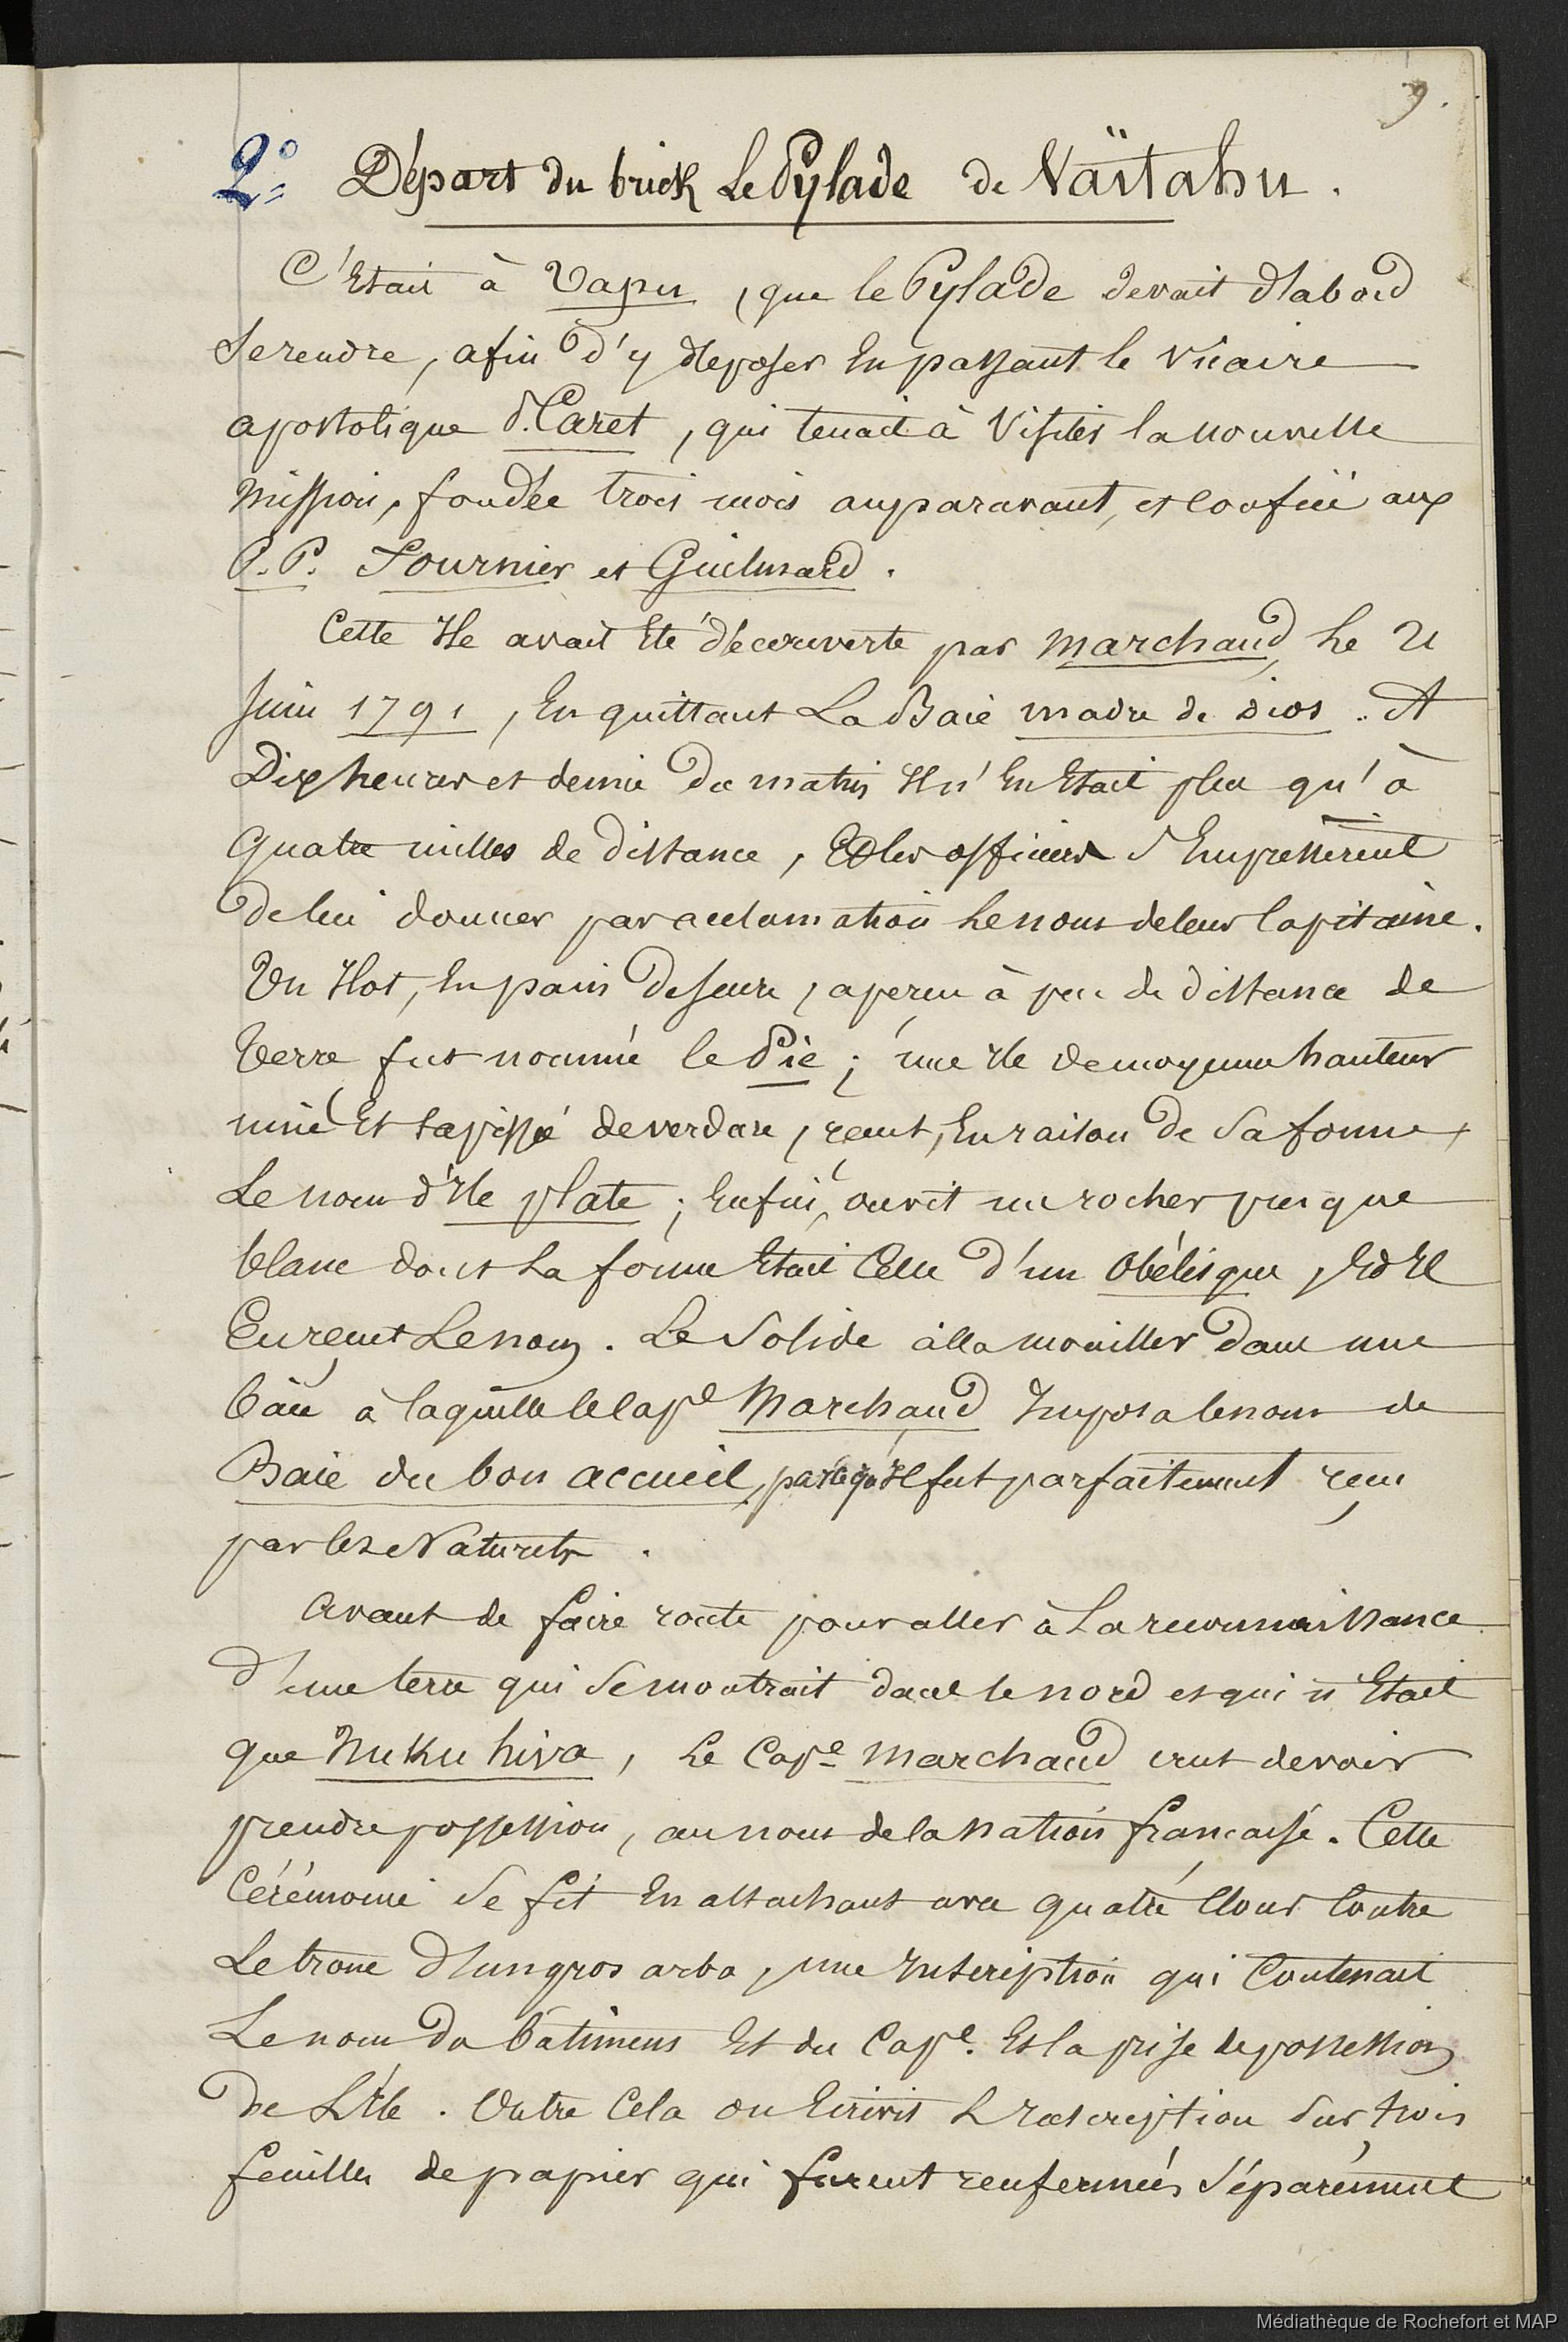 9.
2° Départ du brick Le Pylade de Vaïtahu.
C'Etait à Vapu, que le Pylade devait d'abord
Se rendre, afin d'y déposer En passant le Vicaire
apostolique P. Caret, qui tenait à Visiter la nouvelle
Mission, fondée trois mois auparavant, et confiée aux
P.P. Fournier et Guilmard.
Cette Ile avait Eté découverte par Marchand, Le 21
Juin 1791, En quittant La Baie madre de dios. A
Dix heures et demie du matin Il n'En Etait plus qu'à
quatre milles de distance, Et les officiers s'Empressèrent
de lui donner par acclamation Le nom de leur Capitaine.
Un Ilot, En pain de sucre, aperçu à peu de distance de
terre fut nommé le Pic; une Ile de moyenne hauteur
unie Et tapissée de verdure, reçut, En raison de Sa forme,
Le nom d'Ile plate; Enfin, on vit un rocher presque
blanc dont La forme Etait Celle d'un Obélisque, Et Il
En reçut Le nom. Le Solide alla mouiller dans une
baie à laquelle le Cape Marchand Imposa le nom de
Baie du bon accueil, parce qu'Il fut parfaitement reçu
par les Naturels.
Avant de faire route pour aller à La reconnaissance
d'une terre qui Se montrait dans le nord et qui n'Etait
que Nuku hiva, Le Cape Marchand crut devoir
prendre possession, au nom de la nation française. Cette
Cérémonie Se fit En attachant avec quatre Clous Contre
Le tronc d'un gros arbre, une Inscription qui Contenait
Le nom du bâtiment Et du Cape. Et la prise de possession
de L'Ile. Outre Cela on Ecrivit L'Inscription Sur trois
feuilles de papier qui furent renfermées Séparément
Médiathèque de Rochefort et MAP